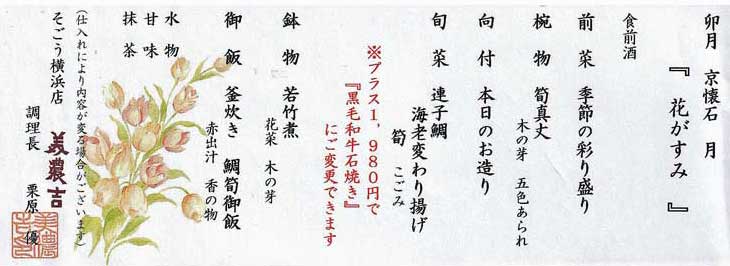 卯月 京懐石 月
『 花がすみ 』
食前酒
前菜 季節の彩り盛り
椀物 筍真丈
木の芽 五色あられ
向付 本日のお造り
旬菜 連子鯛
海老変わり揚げ
筍 こごみ
※プラス1,980円で
『黒毛和牛石焼き』
にご変更できます
鉢物 若竹煮
花菜 木の芽
御飯 釜炊き 鯛筍御飯
赤出汁 香の物
水物
甘味
抹茶
(仕入れにより内容が変る場合がございます)
そごう横浜店 美濃吉
調理長 栗原 優